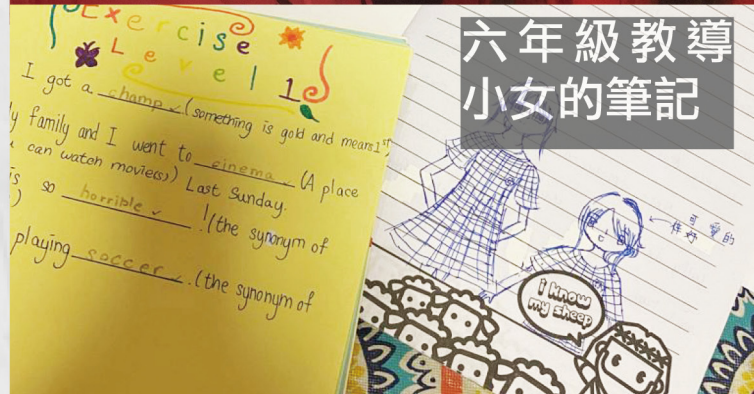 六年級教導
小女的筆記
Exercise
Level 1
I got a champ ✓ (something is gold and means 1st)
y family and I went to cinema (A place
can watch movie(s)) Last Sunday.
is so horrible ✓ ! (the synonym of
playing soccer ✓. (the synonym of
可愛的
i know
my sheep